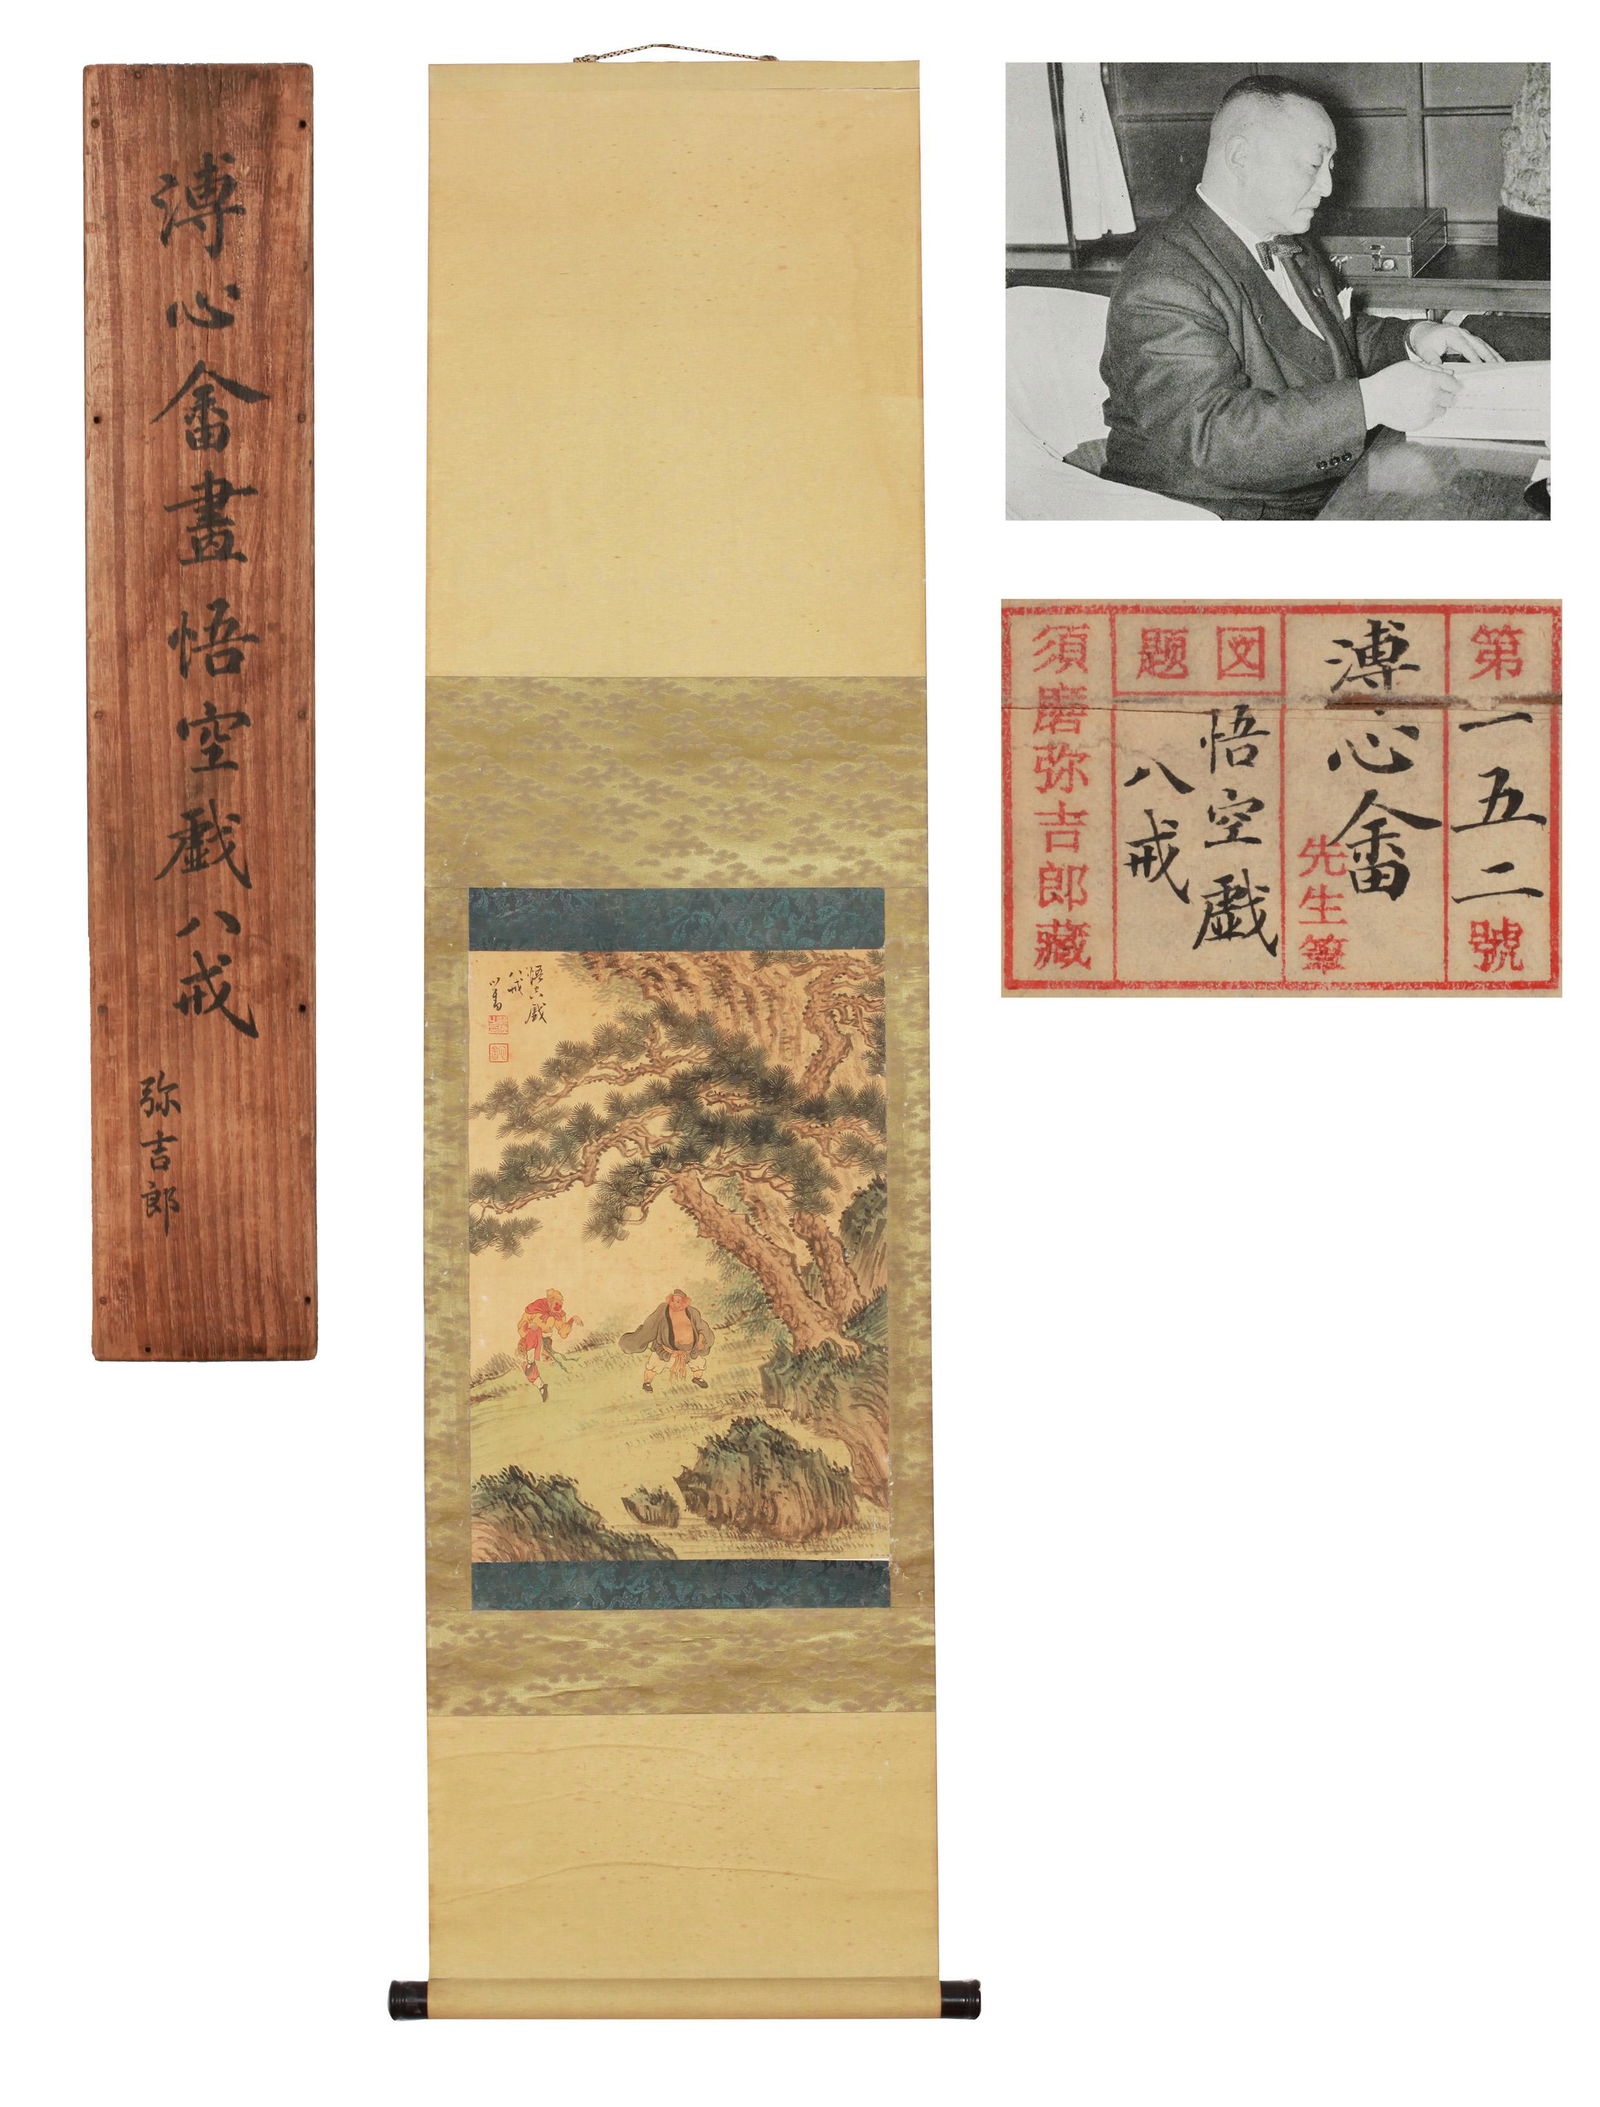 溥心畬畫悟空戲八戒
弥吉郎
悟空戲
八戒
心畬
第一五二號
溥心畬先生筆
図題
悟空戲
八戒
須磨弥吉郎藏